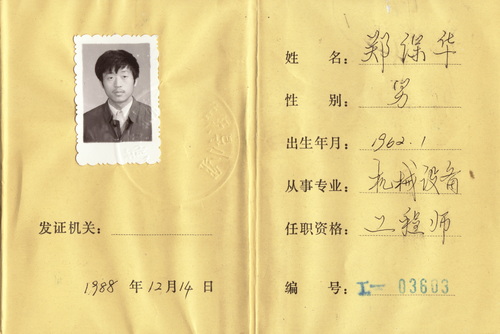 发证机关：
1988 年 12 月 14 日
姓 名： 郑保华
性 别： 男
出生年月： 1962.1
从事专业： 机械设备
任职资格： 工程师
编 号： 工一 03603